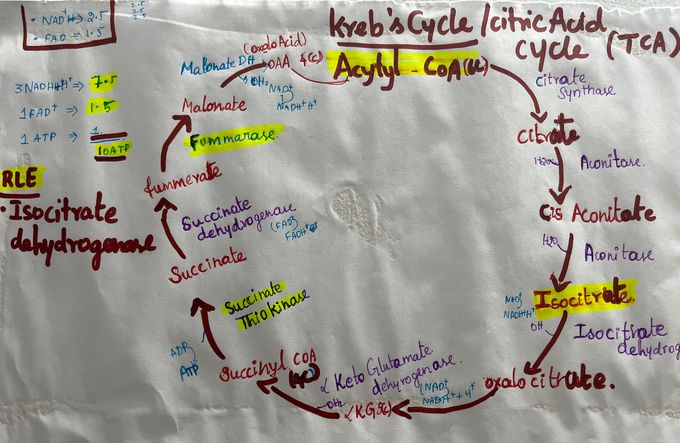 Kreb's Cycle / citric Acid
cycle (TCA)
• NADH⇒ 2.5
• FAD ⇒ 1.5
2.5
2.5
2.5
3 NADHH⁺ ⇒ 7.5
1 FAD⁺ ⇒ 1.5
1 ATP ⇒ 1
10 ATP
RLE
• Isocitrate
dehydrogenase
Acytyl - CoA
citrate
synthase
citrate
H₂O
Aconitase.
Cis Aconitate
H₂O
Aconitase
Isocitrate.
NAD⁺
NADHH⁺
OH
Isocitrate
dehydrog
oxalocitrate.
(NAD⁺
NADH⁺ + H⁺
αKG
α Keto Glutamate
dehyrogenase.
Succinyl COA
ADP
ATP
Succinate
Thiokinase
Succinate
Succinate
dehydrogenase
(FAD)
FADH⁺
fummerate
Fummarase.
Malonate
Malonate DH
(oxaloAcid)
OAA 4(c)
NAD⁺
NADH⁺H⁺